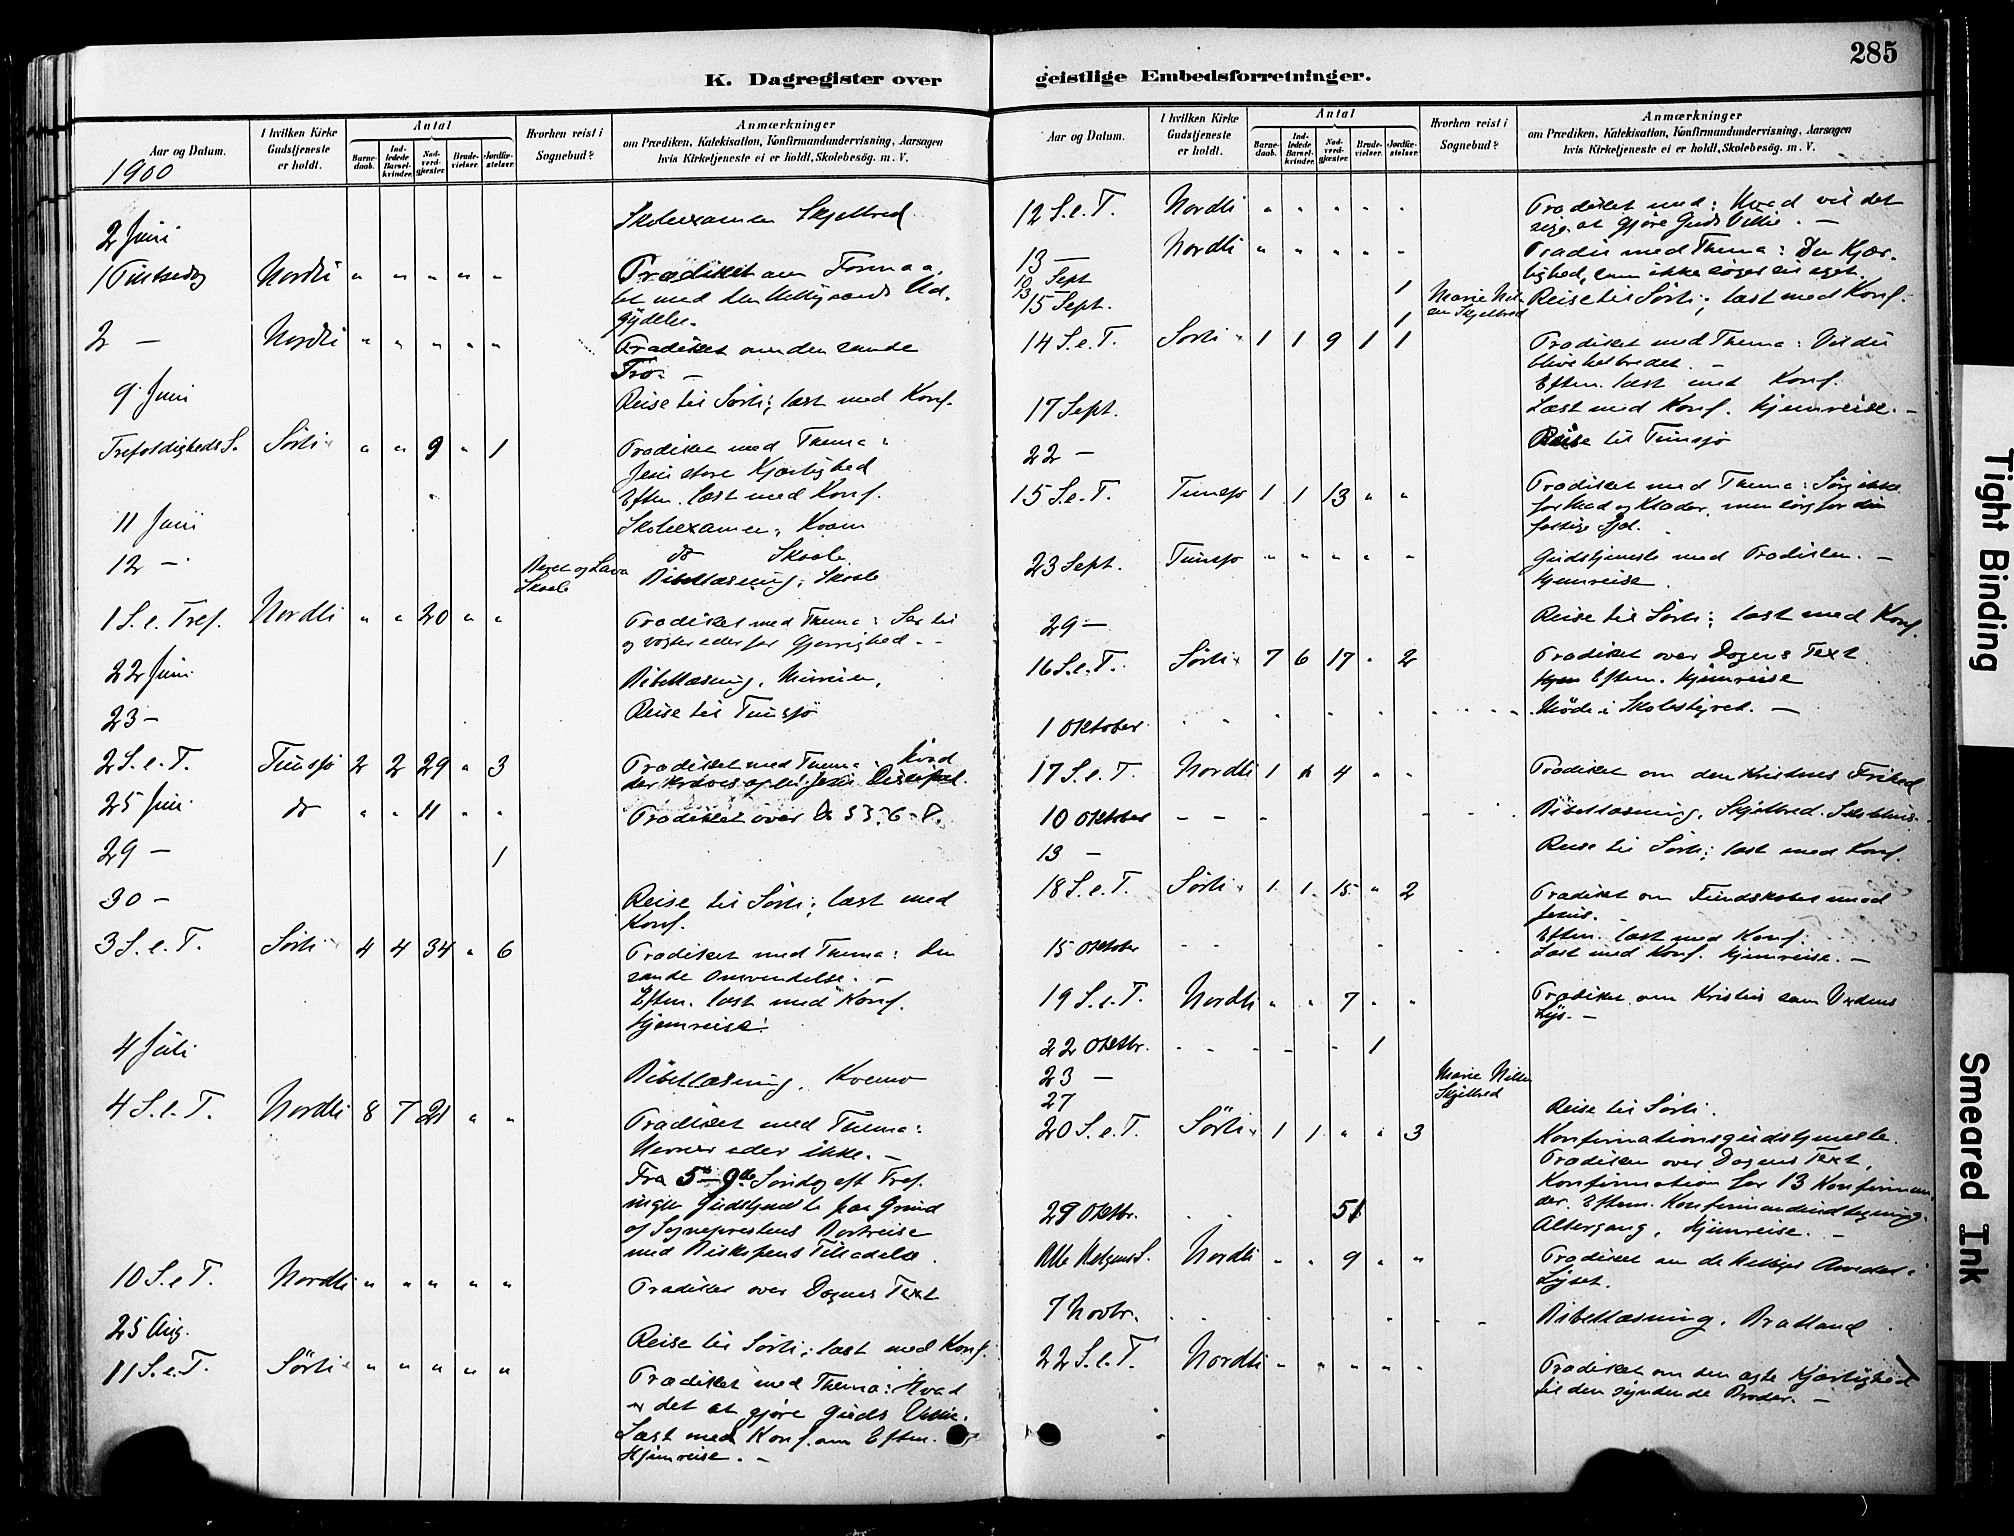 285
K. Dagregister over geistlige Embedsforretninger.
Aar og Datum.
I hvilken Kirke Gudstjeneste er holdt.
Antal
Barne-daab.
Ind-ledede Barsel-kvinder.
Nad-verd-gjæster.
Brude-vielser.
Jordfæ-stelser.
Hvorhen reist i Sognebud?
Anmærkninger
om Prædiken, Katekisation, Konfirmandundervisning, Aarsagen
hvis Kirketjeneste ei er holdt, Skolebesøg. m. V.
1900
2 Juni Skoleexamen Skjelbred
1 Pintsedag Nordli " " " " " Prædiket om
bet med den Helligaands Ud-
gydelse.
2 — Nordli " " " " " Prædiket om den sande
Tro. —
9 Juni Reise til Sørli; læst med Konf.
Trefoldigheds S. Sørli " " 9 " 1 Prædiket med Thema:
Jesu store Kjærlighed
Eftm. læst med Konf.
11 Juni Skoleexamen, Kvam
12 — do Skaale
Skaale Bibellæsning, Skaale
1 S. e. Tref. Nordli " " 20 " " Prædiket med Thema: Ser til
og vogter eder for Gjerrighed. —
22 Juni Bibellæsning,
23 — Reise til Tunsjø
2 S. e. T. Tunsjø 2 2 29 " 3 Prædiket med Thema: hvad
der kræves af en Jesu Discipel.
25 Juni do " " 11 " " Prædiket over Es 53. 6-8.
29 — 1
30 — Reise til Sørli; læst med
Konf.
3 S. e. T. Sørli 4 4 34 " 6 Prædiket med Thema: Den
sande Omvendelse. —
Eftm. læst med Konf.
Hjemreise.
4 Juli Bibellæsning, Kvemo
4 S. e. T. Nordli 8 7 21 " " Prædiket med Thema:
Hevner eder ikke. —
Fra 5te-9de Søndag eft Tref.
ingen Gudstjeneste paa Grund
af Sognepræstens Bortreise
med Biskopens Tilladelse.
10 S. e T. Nordli " " " " " Prædiken over Dagens Text
25 Aug. Reise til Sørli; læst med Konf.
11 S. e. T. Sørli " " " " " Prædiket med Thema: Hvad
er det at gjøre Guds Villie.
Læst med Konf. om Eftm.
Hjemreise. —
Aar og Datum.
I hvilken Kirke Gudstjeneste er holdt.
Antal
Barne-daab.
Ind-ledede Barsel-kvinder.
Nad-verd-gjæster.
Brude-vielser.
Jordfæ-stelser.
Hvorhen reist i Sognebud?
Anmærkninger
om Prædiken, Katekisation, Konfirmandundervisning, Aarsagen
hvis Kirketjeneste ei er holdt, Skolebesøg. m. V.
12 S. e. T. Nordli " " " " " Prædiket med: Hvad vil det
sige at gjøre Guds Villie. —
13 — Nordli " " " " " Prædik med Thema: Den Kjær-
lighed, som ikke søger sit eget.
Sept 1
15 Sept. 1 Marie Skjelbred Reise til Sørli; læst med Konf.
14 S. e. T. Sørli 1 1 9 1 1 Prædiket med Thema: Vil du
blive helbredet. —
Eftm. læst med Konf.
17 Sept. Læst med Konf. Hjemreise. —
22 — Reise til Tunsjø
15 S. e. T. Tunsjø 1 1 13 " " Prædiket med Thema: Sørg ikke
for Mad og Klæder, men sørg for din
Sjæl.
23 Sept. Tunsjø " " " " " Gudstjeneste med Prædiken. —
Hjemreise.
29 — Reise til Sørli; læst med Konf.
16 S. e. T. Sørli 7 6 17 " 2 Prædiket over Dagens Text.
Eftm. Hjemreise
1 Oktober Møde i Skolestyret. —
17 S. e. T. Nordli 1 4 " " Prædiket om den Kristnes Frihed
10 Oktober Bibellæsning, Skjelbred.
13 — Reise til Sørli; læst med Konf.
18 S. e. T. Sørli 1 1 15 " 2 Prædiket om Fiendskabet mod
Jesus.
Eftm. læst med Konf.
15 Oktober Læst med Konf. Hjemreise. —
19 S. e. T. Nordli " " 7 " " Prædiket om Kristus som Verdens
Lys. —
22 Oktbr. 1
23 — Marie Skjelbred
27 Reise til Sørli.
20 S. e. T. Sørli 1 1 " " 3 Konfirmationsgudstjeneste.
Prædiken over Dagens Text,
Konfirmation for 13 Konfirman-
der. Eftm.
29 Oktbr. 51 Altergang, Hjemreise. —
Alle Helgens S. Nordli " " 9 " " Prædiket om de Helliges Arvedel i
Lyset.
7 Novbr. Bibellæsning, Bratland
22 S. e. T. Nordli " " " " " Prædiket om den ægte Kjærlighed
til den syndende Broder. —
Tight Binding
Smeared Ink